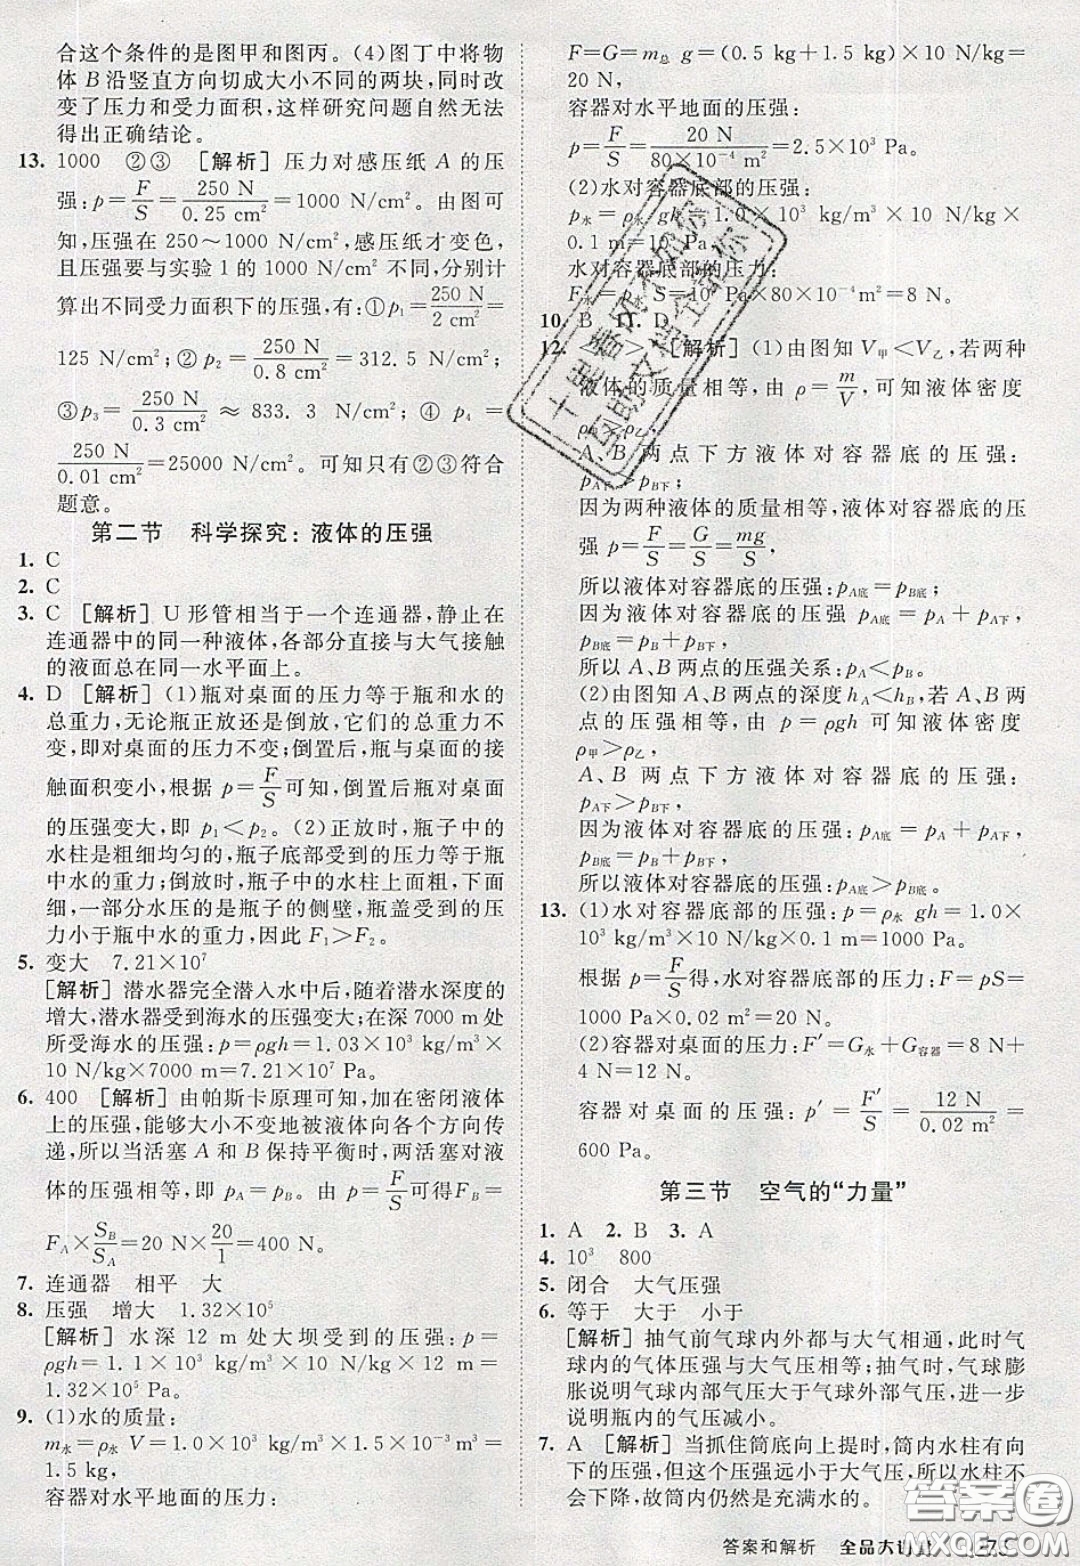 合这个条件的是图甲和图丙。(4)图丁中将物
体 B 沿竖直方向切成大小不同的两块,同时改
变了压力和受力面积,这样研究问题自然无法
得出正确结论。
13. 1000 ②③ [解析] 压力对感压纸 A 的压
强:p=F/S=250 N/0.25 cm²=1000 N/cm²。由图可
知,压强在 250～1000 N/cm²,感压纸才变色,
且压强要与实验 1 的 1000 N/cm² 不同,分别计
算出不同受力面积下的压强,有:①p₁=250 N/2 cm²=
125 N/cm²;② p₂=250 N/0.8 cm²=312.5 N/cm²;
③p₃=250 N/0.3 cm² ≈ 833.3 N/cm²;④ p₄=
250 N/0.01 cm²=25000 N/cm²。可知只有②③符合
题意。
第二节 科学探究:液体的压强
1. C
2. C
3. C [解析] U 形管相当于一个连通器,静止在
连通器中的同一种液体,各部分直接与大气接触
的液面总在同一水平面上。
4. D [解析] (1)瓶对桌面的压力等于瓶和水的
总重力,无论瓶正放还是倒放,它们的总重力不
变,即对桌面的压力不变;倒置后,瓶与桌面的接
触面积变小,根据 p=F/S可知,倒置后瓶对桌面
的压强变大,即 p₁<p₂。(2)正放时,瓶子中的
水柱是粗细均匀的,瓶子底部受到的压力等于瓶
中水的重力;倒放时,瓶子中的水柱上面粗,下面
细,一部分水压的是瓶子的侧壁,瓶盖受到的压
力小于瓶中水的重力,因此 F₁>F₂。
5. 变大 7.21×10⁷
[解析] 潜水器完全潜入水中后,随着潜水深度的
增大,潜水器受到海水的压强变大;在深 7000 m 处
所受海水的压强:p=ρgh=1.03×10³ kg/m³×
10 N/kg×7000 m=7.21×10⁷ Pa。
6. 400 [解析] 由帕斯卡原理可知,加在密闭液体
上的压强,能够大小不变地被液体向各个方向传
递,所以当活塞 A 和 B 保持平衡时,两活塞对液
体的压强相等,即 p_A=p_B。由 p=F/S可得F_B=
F_A×S_B/S_A=20 N×20/1=400 N。
7. 连通器 相平 大
8. 压强 增大 1.32×10⁵
[解析] 水深 12 m 处大坝受到的压强:p=
ρgh=1.1×10³ kg/m³×10 N/kg×12 m=
1.32×10⁵ Pa。
9. (1)水的质量:
m水=ρ水 V=1.0×10³ kg/m³×1.5×10⁻³ m³=
1.5 kg,
容器对水平地面的压力:
F=G=m总 g=(0.5 kg+1.5 kg)×10 N/kg=
20 N,
容器对水平地面的压强:
p=F/S=20 N/80×10⁻⁴ m²=2.5×10³ Pa。
(2)水对容器底部的压强:
p水=ρ水 gh=1.0×10³ kg/m³×10 N/kg×
0.1 m=10³ Pa,
水对容器底部的压力:
F水=p水 S=10³ Pa×80×10⁻⁴m²=8 N。
10. B 11. D
12. < > [解析] (1)由图知 V甲<V乙,若两种
液体的质量相等,由 ρ=m/V,可知液体密度
ρ甲>ρ乙,
A、B 两点下方液体对容器底的压强:
p_A下>p_B下;
因为两种液体的质量相等,液体对容器底的压
强 p=F/S=G/S=mg/S,
所以液体对容器底的压强:p_A底=p_B底;
因为液体对容器底的压强:p_A底=p_A+p_A下,
p_B底=p_B+p_B下,
所以 A、B 两点的压强关系:p_A<p_B。
(2)由图知 A、B 两点的深度 h_A<h_B,若 A、B 两
点的压强相等,由 p=ρgh 可知液体密度
ρ甲>ρ乙,
A、B 两点下方液体对容器底的压强:
p_A下>p_B下,
因为液体对容器底的压强:p_A底=p_A+p_A下,
p_B底=p_B+p_B下,
所以液体对容器底的压强:p_A底>p_B底。
13. (1)水对容器底部的压强:p=ρ水 gh=1.0×
10³ kg/m³×10 N/kg×0.1 m=1000 Pa,
根据 p=F/S得,水对容器底部的压力:F=pS=
1000 Pa×0.02 m²=20 N。
(2)容器对桌面的压力:F′=G水+G容器=8 N+
4 N=12 N,
容器对桌面的压强:p′=F′/S=12 N/0.02 m²=
600 Pa。
第三节 空气的“力量”
1. A 2. B 3. A
4. 10³ 800
5. 闭合 大气压强
6. 等于 大于 小于
[解析] 抽气前气球内外都与大气相通,此时气
球内的气体压强与大气压相等;抽气时,气球膨
胀说明气球内部气压大于气球外部气压,进一步
说明瓶内的气压减小。
7. A [解析] 当抓住筒底向上提时,筒内水柱有向
下的压强,但这个压强远远小于大气压,所以水柱不
会下降,故筒内仍然是充满水的。
答案和解析 全品大讲堂
答案圈
MXQE.COM